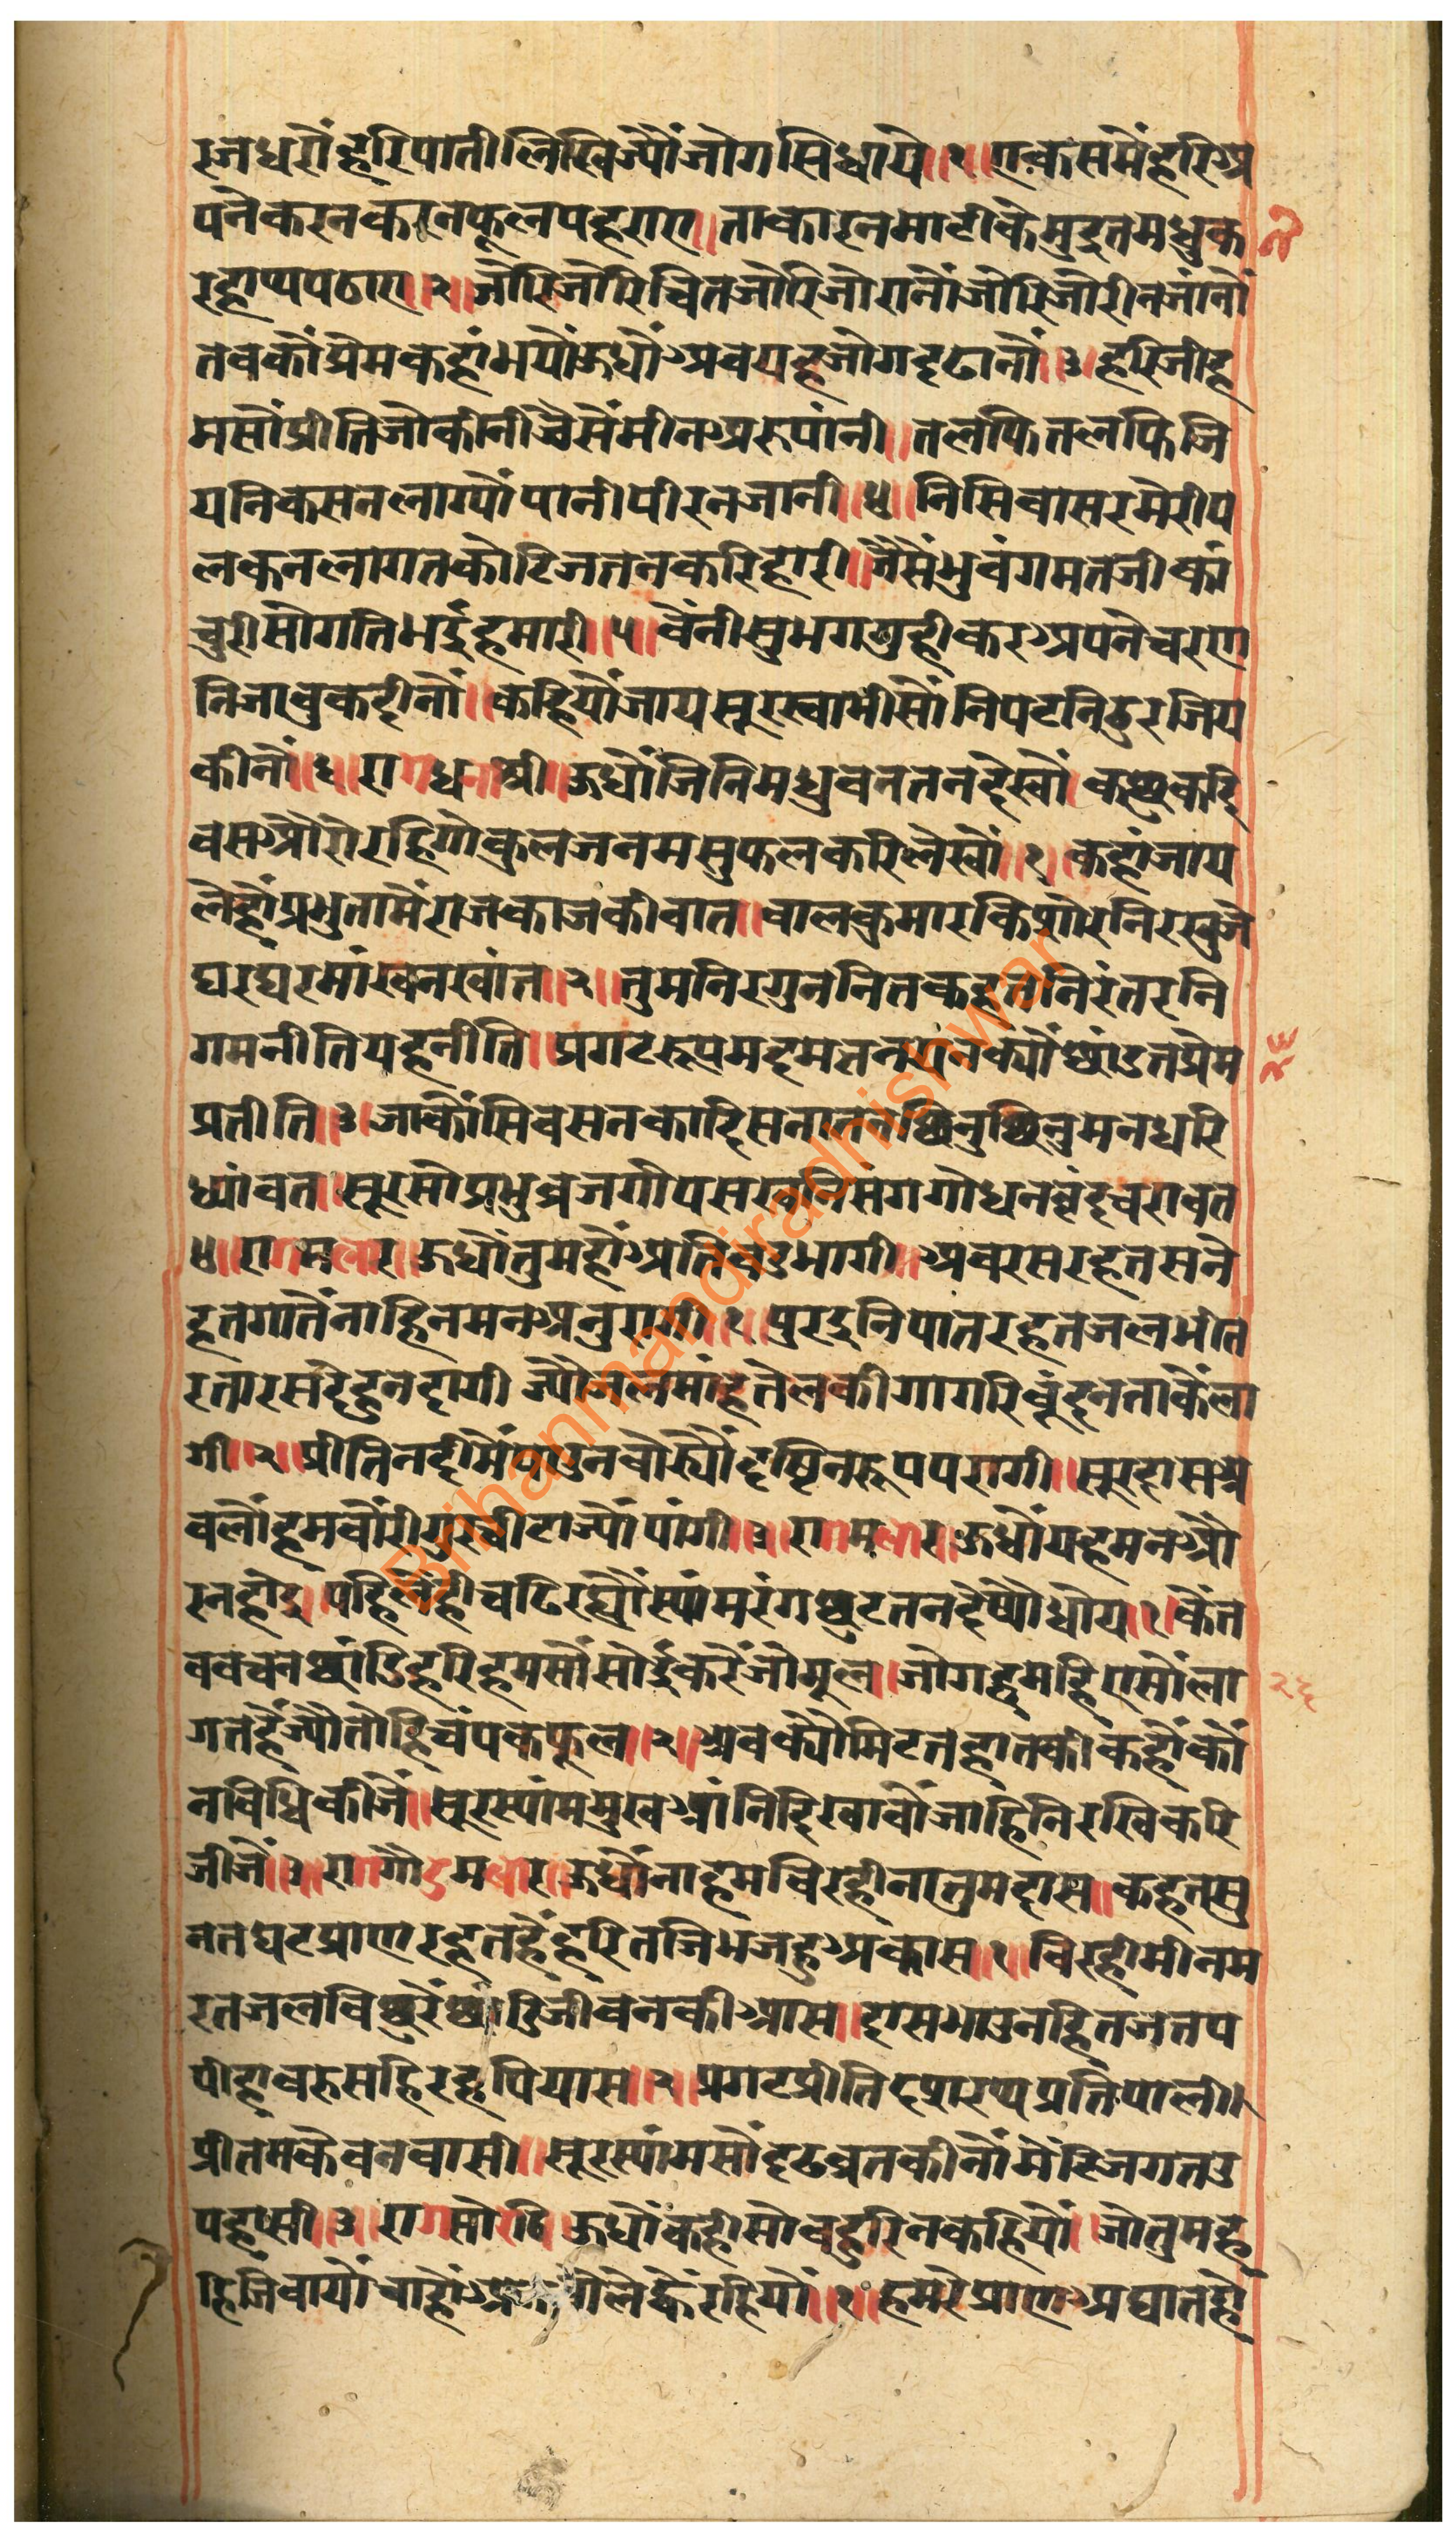 रजधरौंहरिपातीलिखिज्यौंजोगसिधाये॥१॥एकसमैंहरिअ
पनेकरनकरनफूलपहराए॥ताकारनमाटीकेमुद्रुतमधुक
रहाथपठाए॥२॥जोरिजोरिचितजोरिजोरानौंजोरिजोरीनजांनौं
तबकौंप्रेमकहांभयौंऊधौंअवयहजोगदृढानौं॥३॥हरिजीह
मसौंप्रीतिजोकीनीजैसेंमीनअरुपांनी॥तलफितलफिजि
यनिकसनलाग्यौंपानीपीरनजानी॥४॥निसिवासरमेरीप
लकनलागतकोटिजतनकरिहारी॥जैसैंभुवंगमतजीकां
चुरीसोगतिभईहमारी॥५॥वैंनीसुभगगुहीकरअपनेचरण
निजावुकदीनौं॥कहियौंजायसूरस्वामीसौंनिपटनिठुरजिय
कीनौं॥६॥रागधनाश्री॥ऊधौंजिनिमधुवनतनदेखौं॥कछुकदि
वसऔरोरहिगोकुलजनमसुफलकरिलेखौं॥१॥कहांजाय
लैहौंप्रभुतामैंराजकाजकीवात॥वालकुमारकिशोरनिरखुजे
घरघरमांखनखांत॥२॥तुमनिरगुननितकहतनिरंतरनि
गमनीतियहनीति॥प्रगटरूपमदमतनयनक्यौंछांडतप्रेम
प्रतीति॥३॥जाकौंसिवसनकादिसनातनछिनुछिनुमनधरि
ध्यांवत॥सूरसोप्रभुब्रजगोपसखनिसंगगोधनवृंदचरावत
४॥रागमलार॥ऊधौंतुमहौंअतिवडभागी॥अवरसरहतसने
हतगातैंनाहिनमनअनुरागी॥१॥पुरइनिपातरहतजलभीत
रतारसदेहुनदागी ज्यौंजलमांहतेलकीगागरिबूंदनताकैंला
गी॥२॥प्रीतिनदीमैंपाउनवोर्यौंदृष्टिनरूपपरागी॥सूरदासअ
वलौंहमवौरीगुरचीटाज्यौंपांगी॥३॥रागमलार॥ऊधौंयहमनऔ
रनहोइ॥पहिलेंहीचढिरह्यौंस्यांमरंगछुटतनदेष्यौधोय॥१॥कैंत
ववचनछांडिहरिहमसौंसोईकरेंजोमूल॥जोगहमहिएसोंला
गतहैंज्यौंतोहिचंपकफूल॥२॥अवक्यौंमिटतहातकीकहौंकौं
नविधिकीजैं॥सूरस्यांममुखआंनिदिखावौंजाहिनिरखिकरि
जीजैं॥३॥रागगौडमलार॥ऊधौंनाहमविरहीनातुमदास॥कहतसु
नतघटप्राणरहतहैंहरितजिभजहुअकास॥१॥विरहीमीनम
रतजलविछुरेंछांडिजीवनकीआस॥दासभाउनहितजतप
पीहावरुसहिरहपियास॥२॥प्रगटप्रीतिदशरथप्रतिपाली॥
प्रीतमकैवनवासी॥सूरस्यांमसौंदृढव्रतकीनौंमेंटिजगतउ
पहासी॥३॥रागसोरठि॥ऊधौंकहीसोवहुरिनकहियौं॥जोतुमह
हिजिवायौंचाहौंअनवोलेह्वैंरहियौं॥१॥हमरेप्राणअघातहों